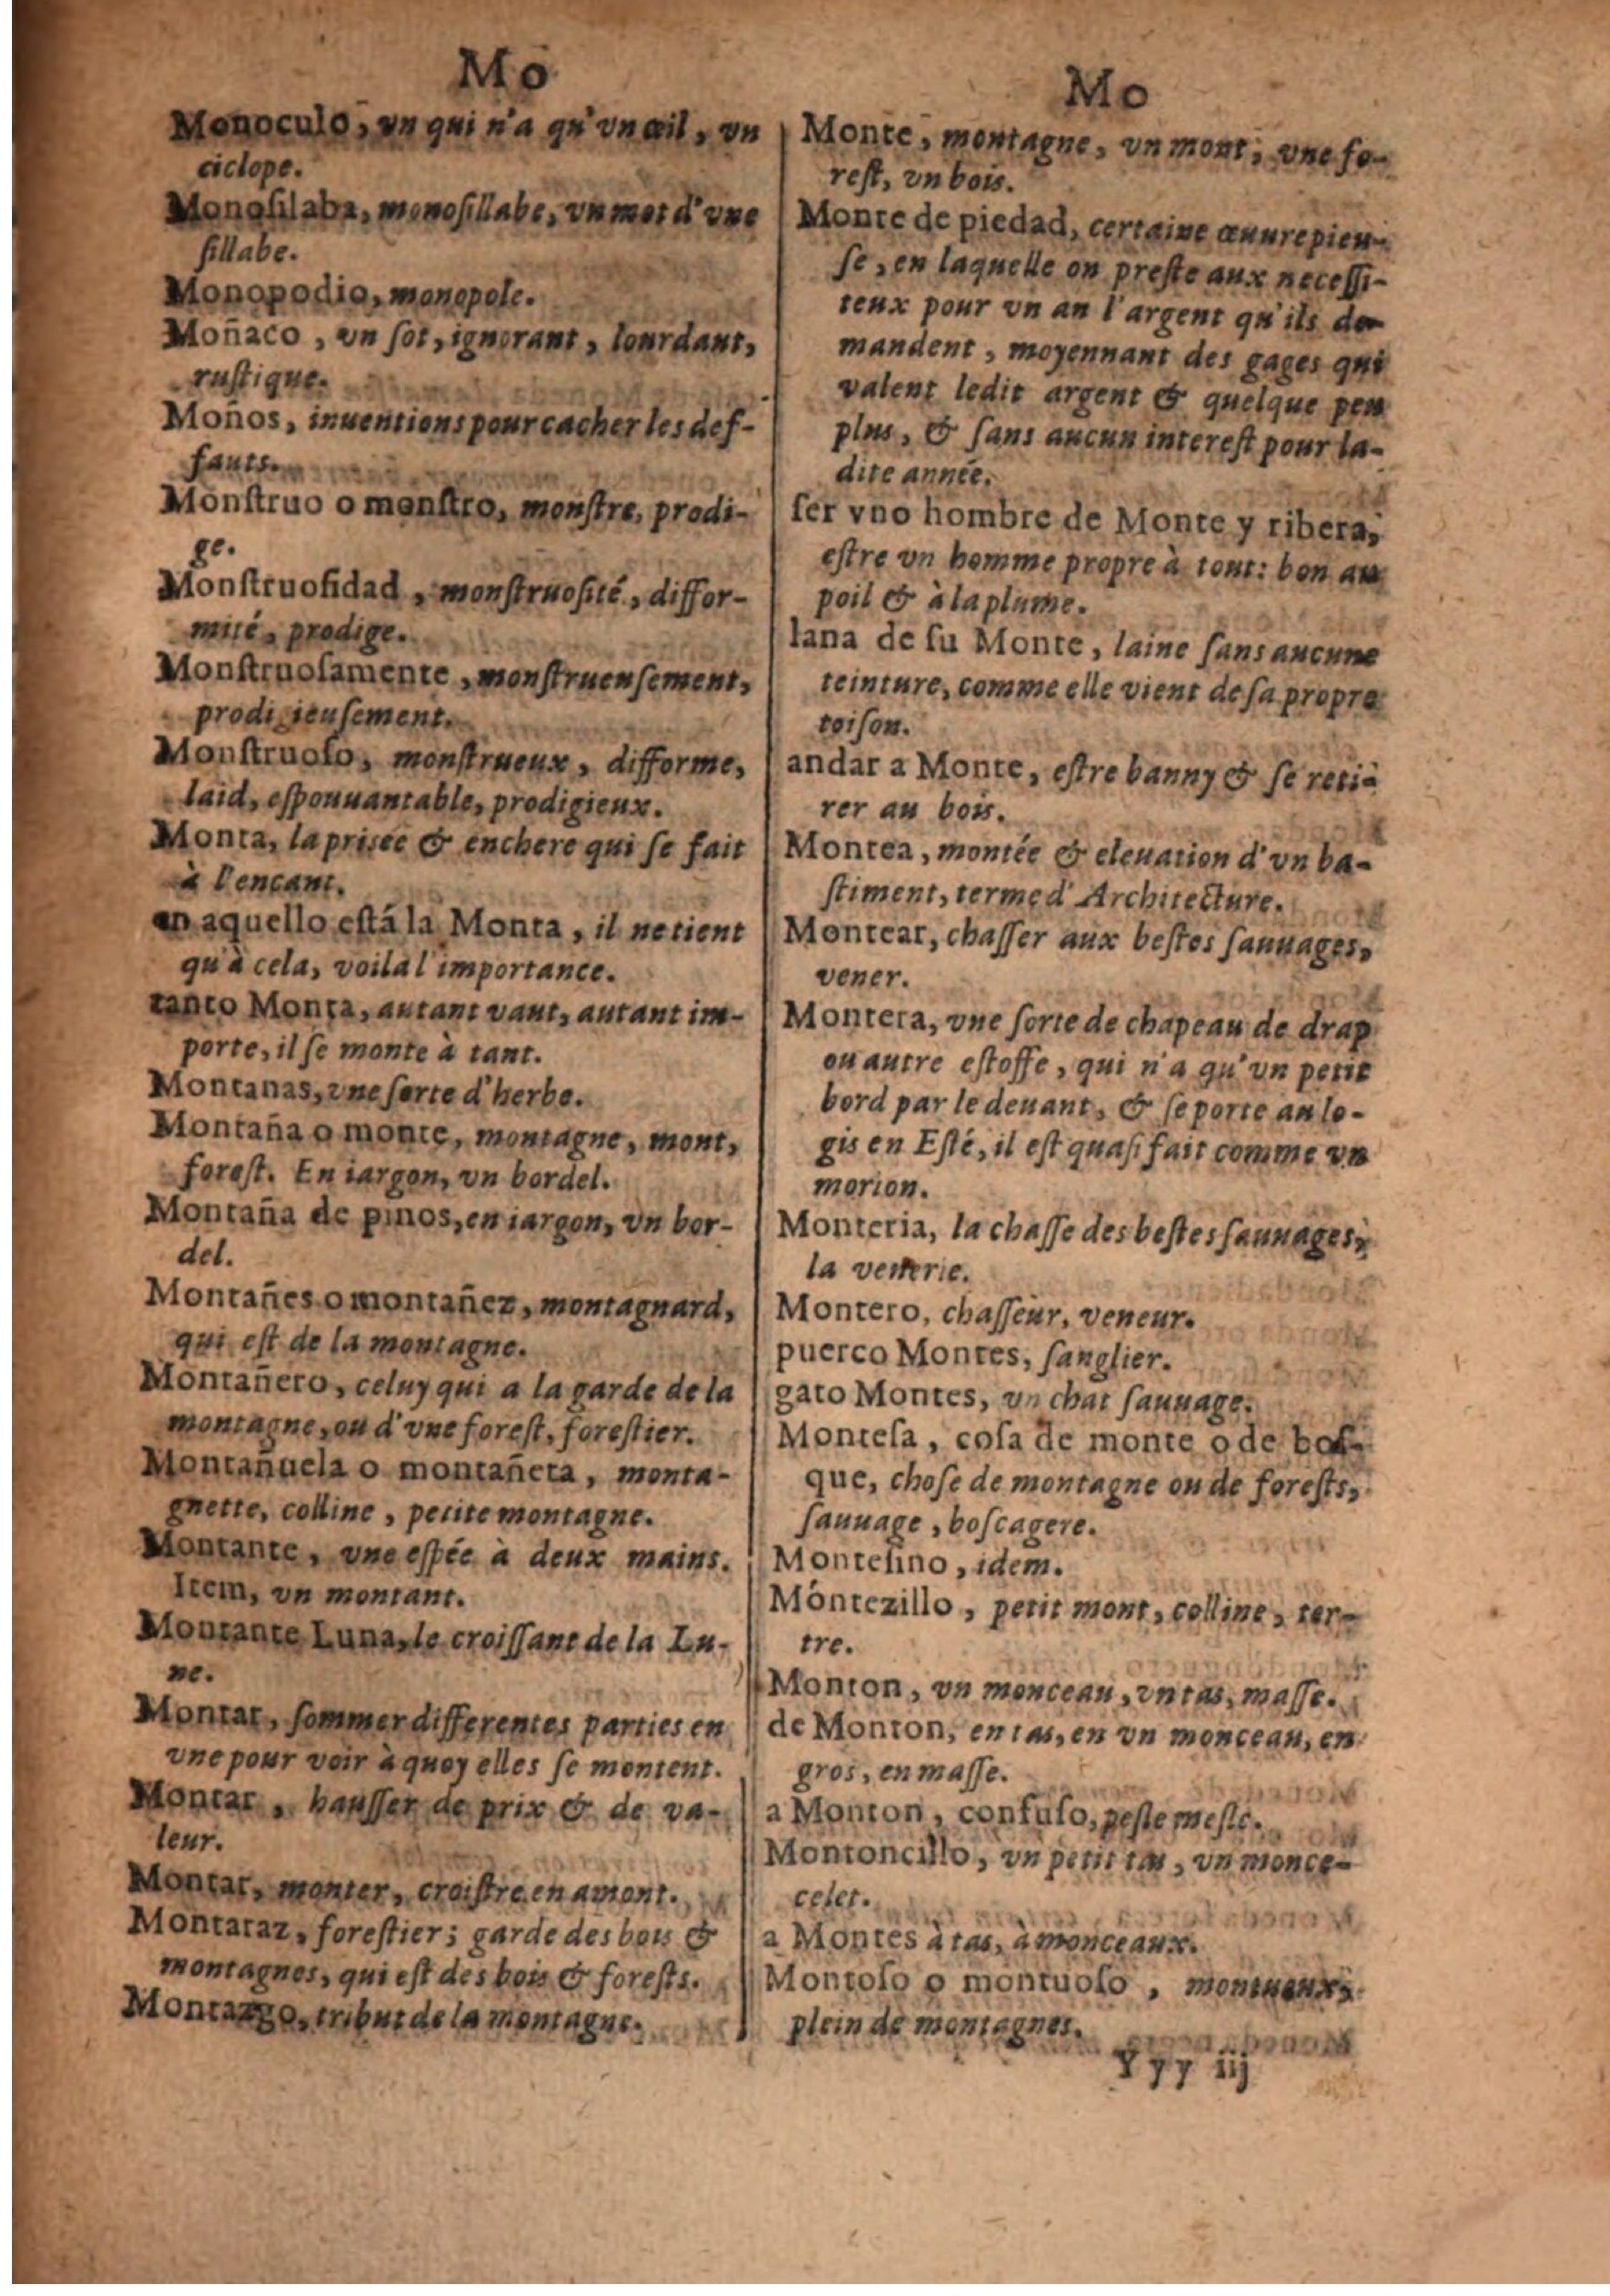 Mo
Monoculo, vn qui n'a qu'vn œil, vn
ciclope.
Monoſilaba, monoſillabe, vn mot d'vne
ſillabe.
Monopodio, monopole.
Moñaco, vn ſot, ignorant, lourdaut,
ruſtique.
Moños, inuentions pour cacher les def-
fauts.
Monſtruo o monſtro, monſtre, prodi-
ge.
Monſtruoſidad, monſtruoſité, diffor-
mité, prodige.
Monſtruoſamente, monſtrueuſement,
prodigieuſement.
Monſtruoſo, monſtrueux, difforme,
laid, eſpouuantable, prodigieux.
Monta, la prisée & enchere qui ſe fait
à l'encant.
en aquello eſtá la Monta, il ne tient
qu'à cela, voila l'importance.
tanto Monta, autant vaut, autant im-
porte, il ſe monte à tant.
Montanas, vne ſorte d'herbe.
Montaña o monte, montagne, mont,
foreſt. En iargon, vn bordel.
Montaña de pinos, en iargon, vn bor-
del.
Montañes o montañez, montagnard,
qui eſt de la montagne.
Montañero, celuy qui a la garde de la
montagne, ou d'vne foreſt, foreſtier.
Montañuela o montañeta, monta-
gnette, colline, petite montagne.
Montante, vne eſpée à deux mains.
Item, vn montant.
Montante Luna, le croiſſant de la Lu-
ne.
Montar, ſommer differentes parties en
vne pour voir à quoy elles ſe montent.
Montar, hauſſer de prix & de va-
leur.
Montar, monter, croiſtre en amont.
Montaraz, foreſtier; garde des bois &
montagnes, qui eſt des bois & foreſts.
Montazgo, tribut de la montagne.
Mo
Monte, montagne, vn mont, vne fo-
reſt, vn bois.
Monte de piedad, certaine œuure pieu-
ſe, en laquelle on preſte aux neceſſi-
teux pour vn an l'argent qu'ils de-
mandent, moyennant des gages qui
valent ledit argent & quelque peu
plus, & ſans aucun intereſt pour la-
dite année.
ſer vno hombre de Monte y ribera,
eſtre vn homme propre à tout: bon au
poil & à la plume.
lana de ſu Monte, laine ſans aucune
teinture, comme elle vient de ſa propre
toiſon.
andar a Monte, eſtre banny & ſe reti-
rer au bois.
Montea, montée & eleuation d'vn ba-
ſtiment, terme d'Architecture.
Montear, chaſſer aux beſtes ſauuages,
vener.
Montera, vne ſorte de chapeau de drap
ou autre eſtoffe, qui n'a qu'vn petit
bord par le deuant, & ſe porte au lo-
gis en Eſté, il eſt quaſi fait comme vn
morion.
Monteria, la chaſſe des beſtes ſauuages,
la venerie.
Montero, chaſſeur, veneur.
puerco Montes, ſanglier.
gato Montes, vn chat ſauuage.
Monteſa, coſa de monte o de boſ-
que, choſe de montagne ou de foreſts,
ſauuage, boſcagere.
Monteſino, idem.
Móntezillo, petit mont, colline, ter-
tre.
Monton, vn monceau, vn tas, maſſe.
de Monton, en tas, en vn monceau, en
gros, en maſſe.
a Monton, confuſo, peſle meſle.
Montoncillo, vn petit tas, vn monce-
celet.
a Montes à tas, à monceaux.
Montoſo o montuoſo, montueux,
plein de montagnes.
Yyy iij